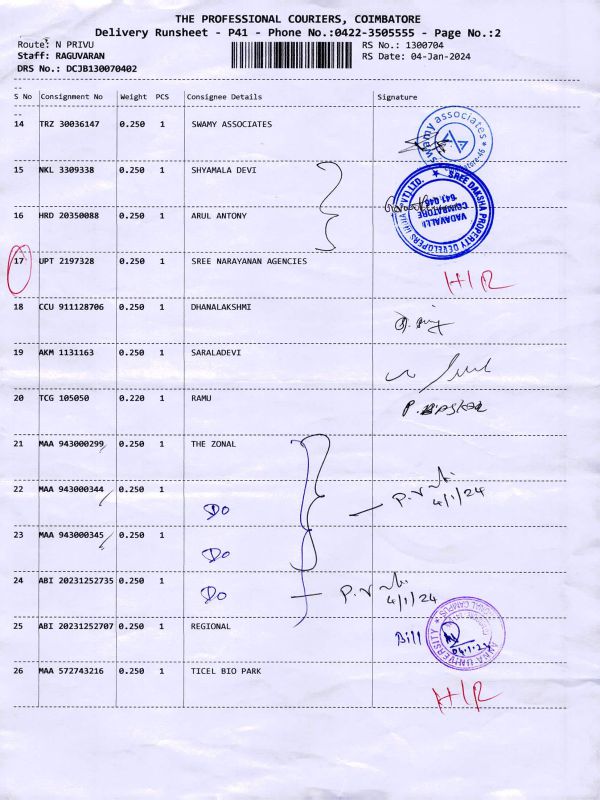 THE PROFESSIONAL COURIERS, COIMBATORE
Delivery Runsheet - P41 - Phone No.:0422-3505555 - Page No.:2
Route: N PRIVU RS No.: 1300704
Staff: RAGUVARAN RS Date: 04-Jan-2024
DRS No.: DCJB130070402
S No Consignment No Weight PCS Consignee Details Signature
14 TRZ 30036147 0.250 1 SWAMY ASSOCIATES
swamy associates
15 NKL 3309338 0.250 1 SHYAMALA DEVI
SREE DAKSHA PROPERTY DEVELOPERS
VADAVALLI
COIMBATORE
641 046
16 HRD 20350088 0.250 1 ARUL ANTONY
17 UPT 2197328 0.250 1 SREE NARAYANAN AGENCIES
H/R
18 CCU 911128706 0.250 1 DHANALAKSHMI
19 AKM 1131163 0.250 1 SARALADEVI
20 TCG 105050 0.220 1 RAMU
21 MAA 943000299 0.250 1 THE ZONAL
22 MAA 943000344 0.250 1 Do
4/1/24
23 MAA 943000345 0.250 1 Do
24 ABI 20231252735 0.250 1 Do
4/1/24
25 ABI 20231252707 0.250 1 REGIONAL Bill
ANNA UNIVERSITY
04.1.24
26 MAA 572743216 0.250 1 TICEL BIO PARK
H/R